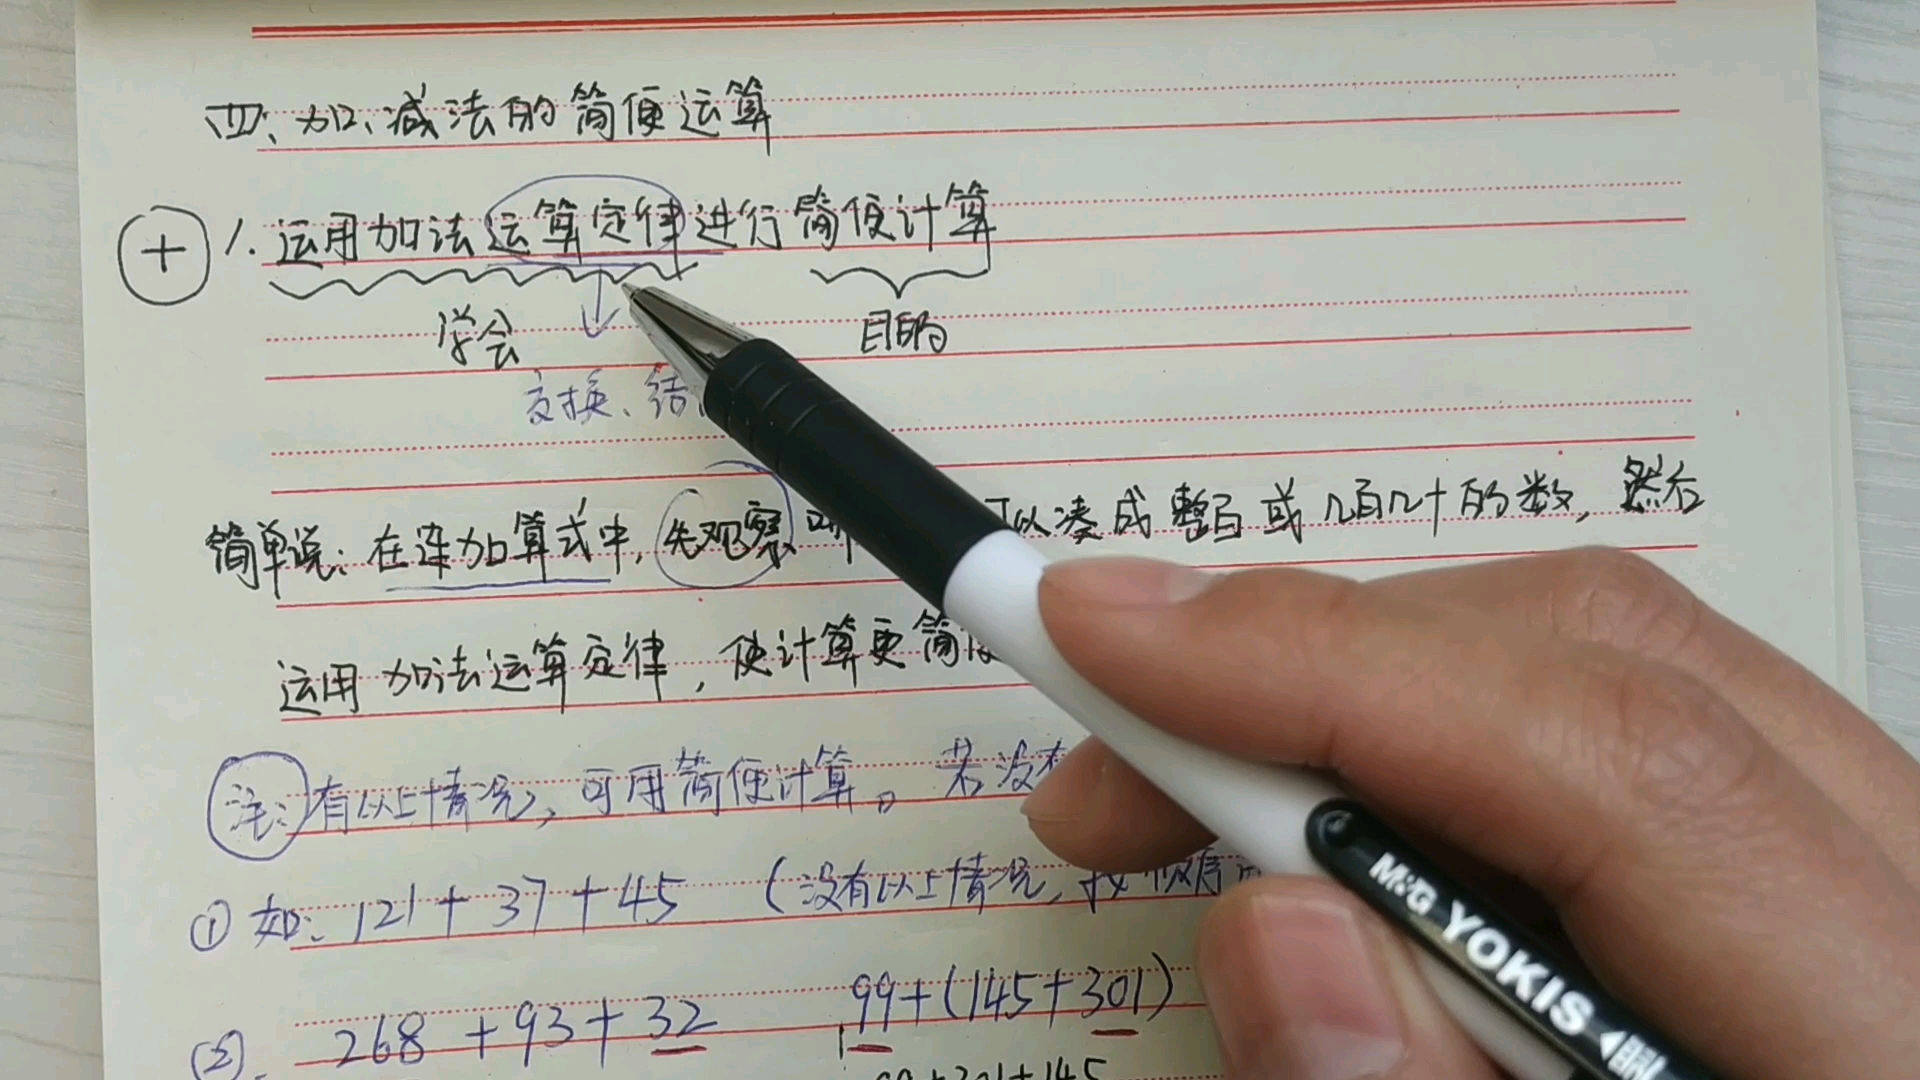 四、加、减法的简便运算
+ 1. 运用加法运算定律进行简便计算
学会 目的
交换、结
简单说: 在连加算式中, 先观察 可以凑成整百或几百几十的数, 然后
运用加法运算定律, 使计算更简便
注: 有以上情况, 可用简便计算。若没有
① 如: 121+37+45 (没有以上情况, 按顺序
② 268+93+32 99+(145+301)
99+301+145
M&G YOKIS